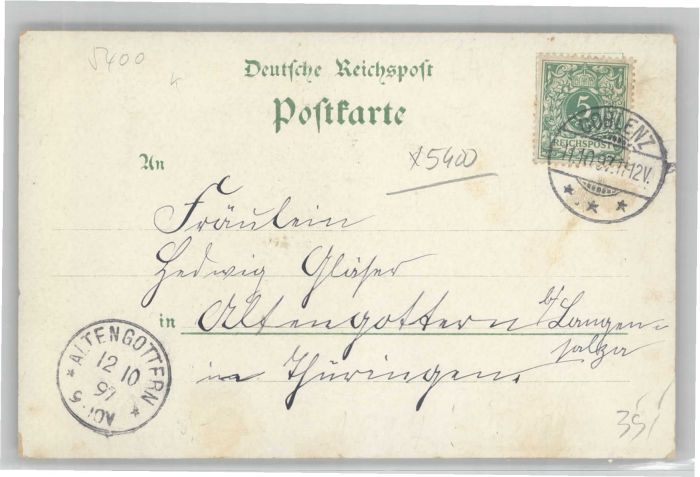 5400
Deutsche Reichspost
Postkarte
5
REICHSPOST
COBLENZ
11.10.97.11-12V.
An
x5400
Fräulein
Hedwig Gläser
in Altengottern b/Langen=
salza
in Thüringen.
ALTENGOTTERN
12 10
97
35,